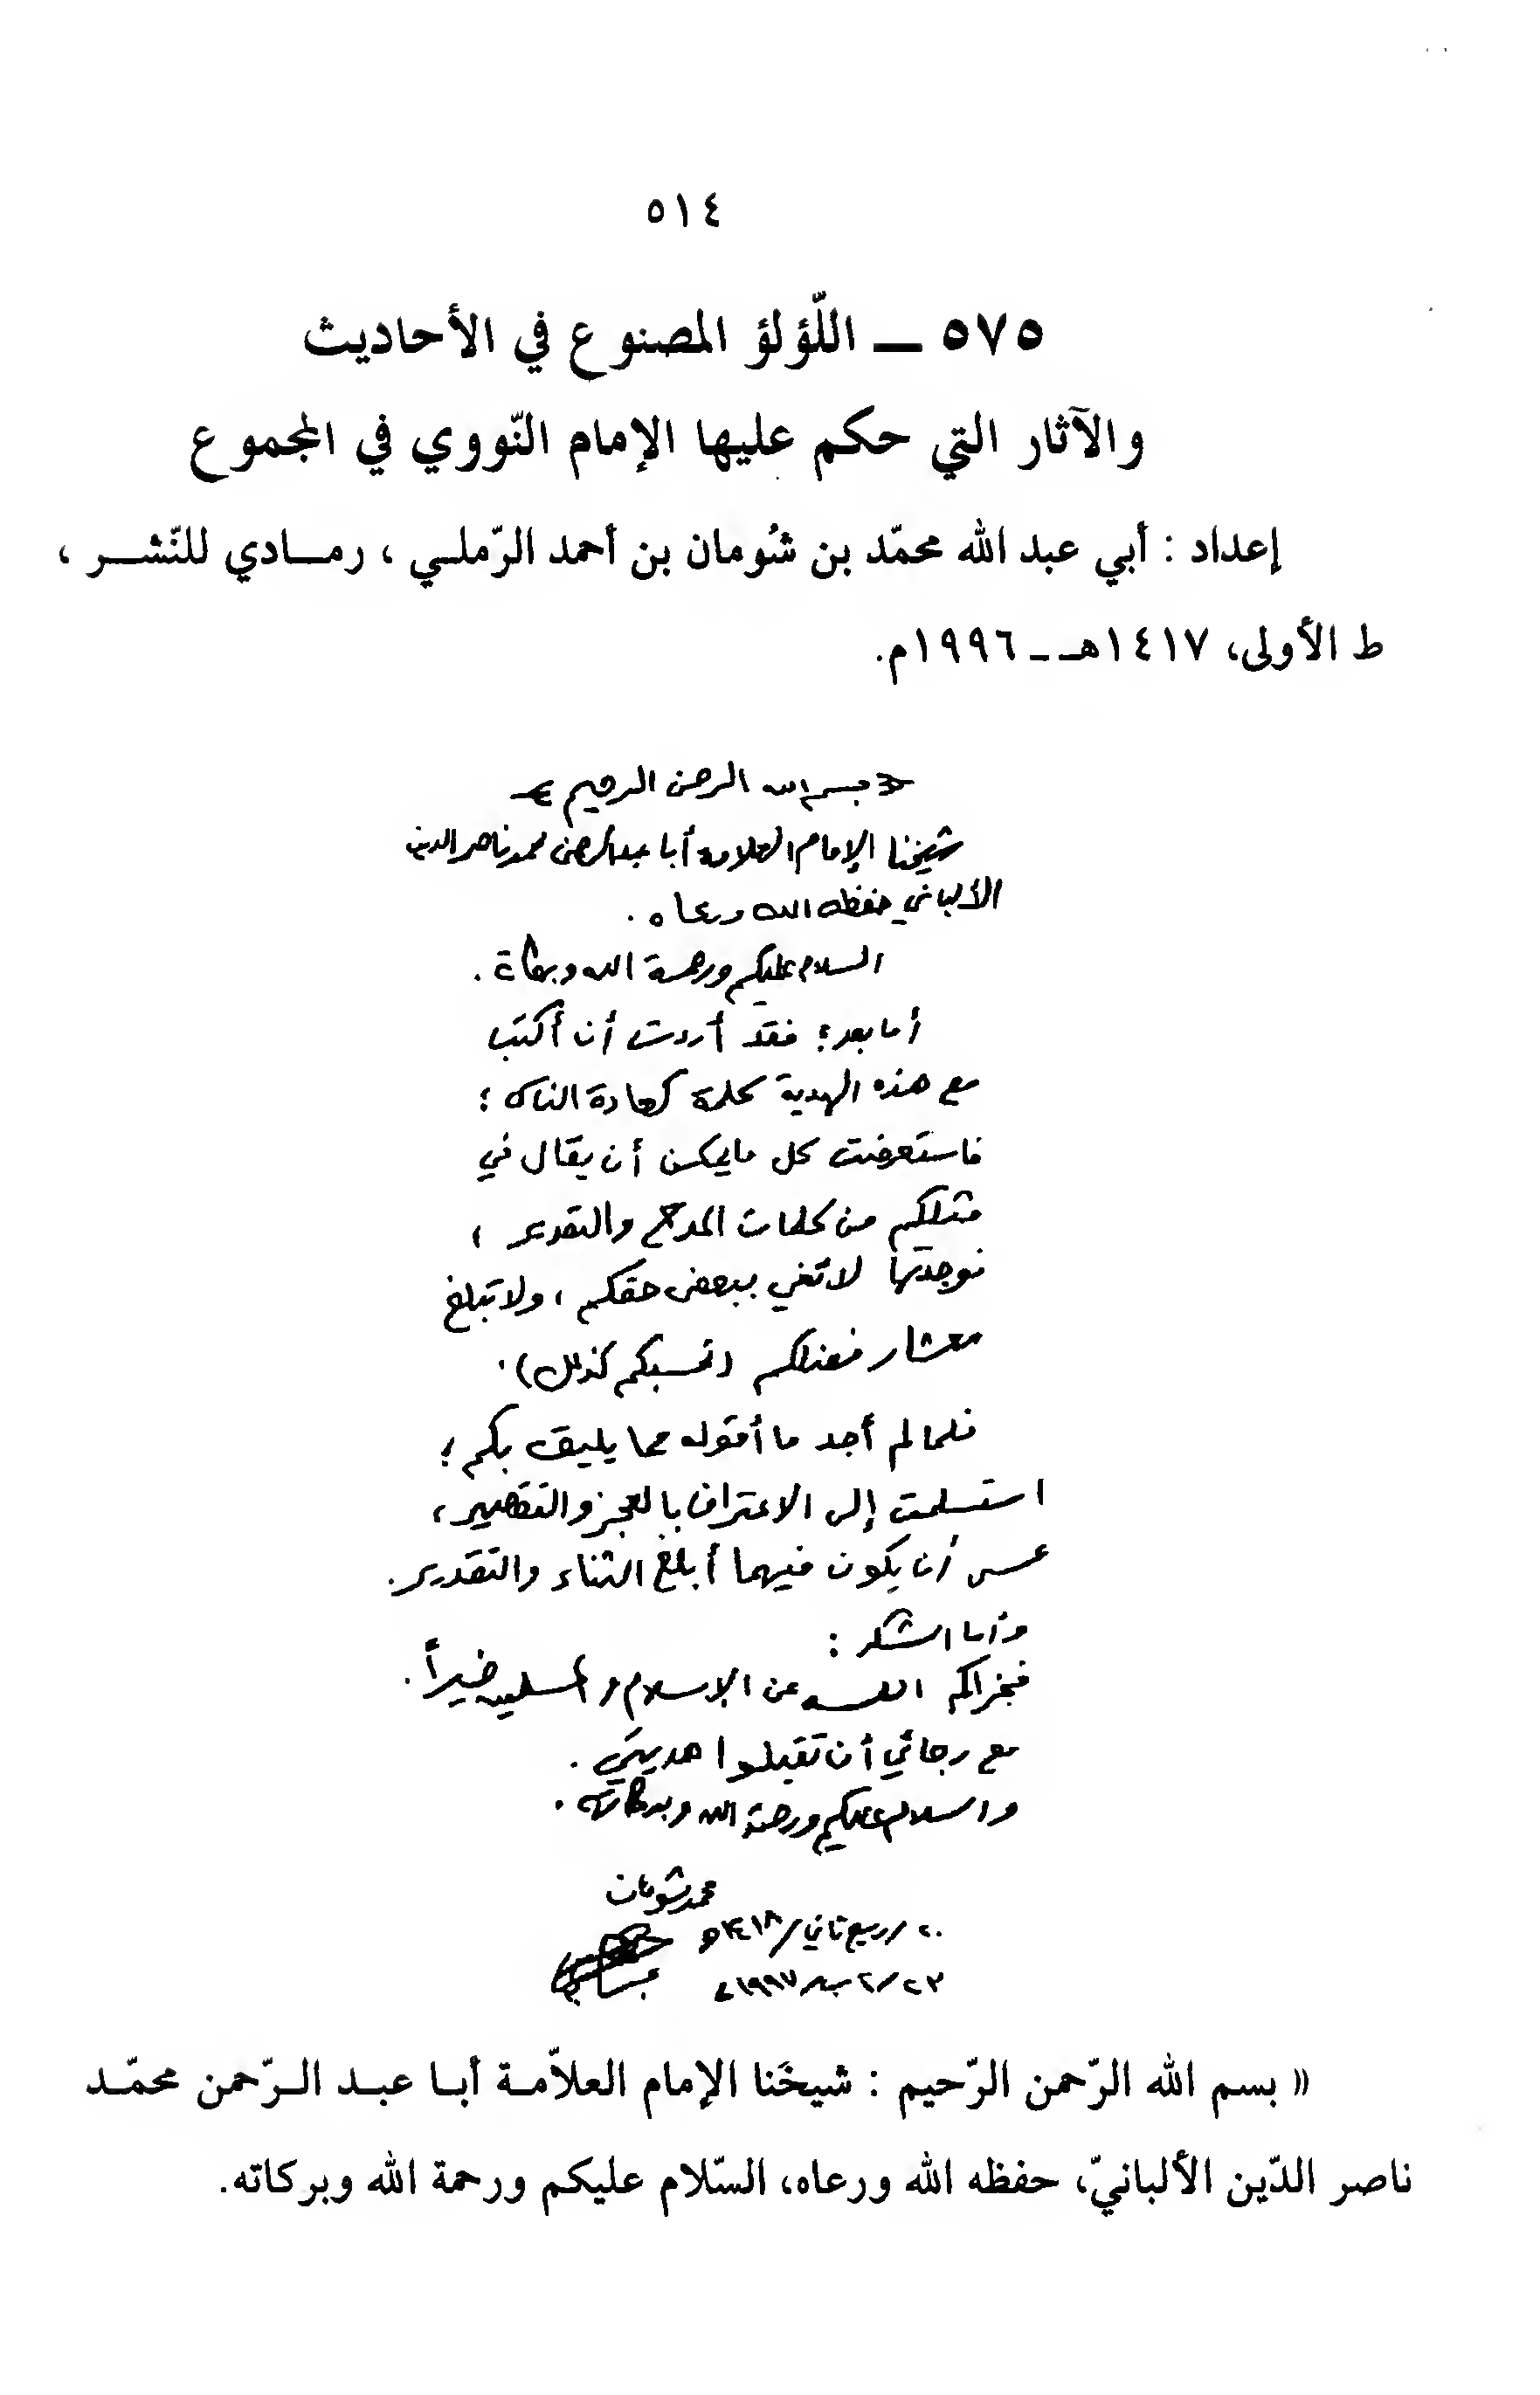 ٥١٤
٥٧٥ ـــ اللّؤلؤ المصنوع في الأحاديث
والآثار التي حكم عليها الإمام النّووي في المجموع
إعداد : أبي عبد الله محمّد بن شُومان بن أحمد الرّملي ، رمادي للنّشر ،
ط الأولى، ١٤١٧هـ ـ ١٩٩٦م.
بسم الله الرحمن الرحيم
شيخنا الإمام العلامة أبا عبد الرحمن محمد ناصر الدين
الألباني حفظه الله ورعاه .
السلام عليكم ورحمة الله وبركاته .
أما بعد ؛ فقد أردت أن أكتب
مع هذه الهدية كلمة كعادة الناس ؛
فاستعرضت كل ما يمكن أن يقال في
مثلكم من كلمات المدح والتقدير ،
فوجدتها لا تفي ببعض حقكم ، ولا تبلغ
معشار فضلكم (نحسبكم كذلك) .
فلما لم أجد ما أقوله مما يليق بكم ؛
استسلمت إلى الاعتراف بالعجز والتقصير ،
عسى أن يكون فيهما أبلغ الثناء والتقدير .
وأما الشكر :
فجزاكم الله عن الإسلام والمسلمين خيراً .
مع رجائي أن تقبلوا هديتي .
والسلام عليكم ورحمة الله وبركاته .
محمد شومان
٢٠ / ربيع ثاني / ١٤١٨ه
٢٣ / ١٩٩٧م
« بسم الله الرّحمن الرّحيم : شيخَنا الإمام العلاّمة أبا عبد الرّحمن محمّد
ناصر الدّين الألبانيّ، حفظه الله ورعاه، السّلام عليكم ورحمة الله وبركاته.